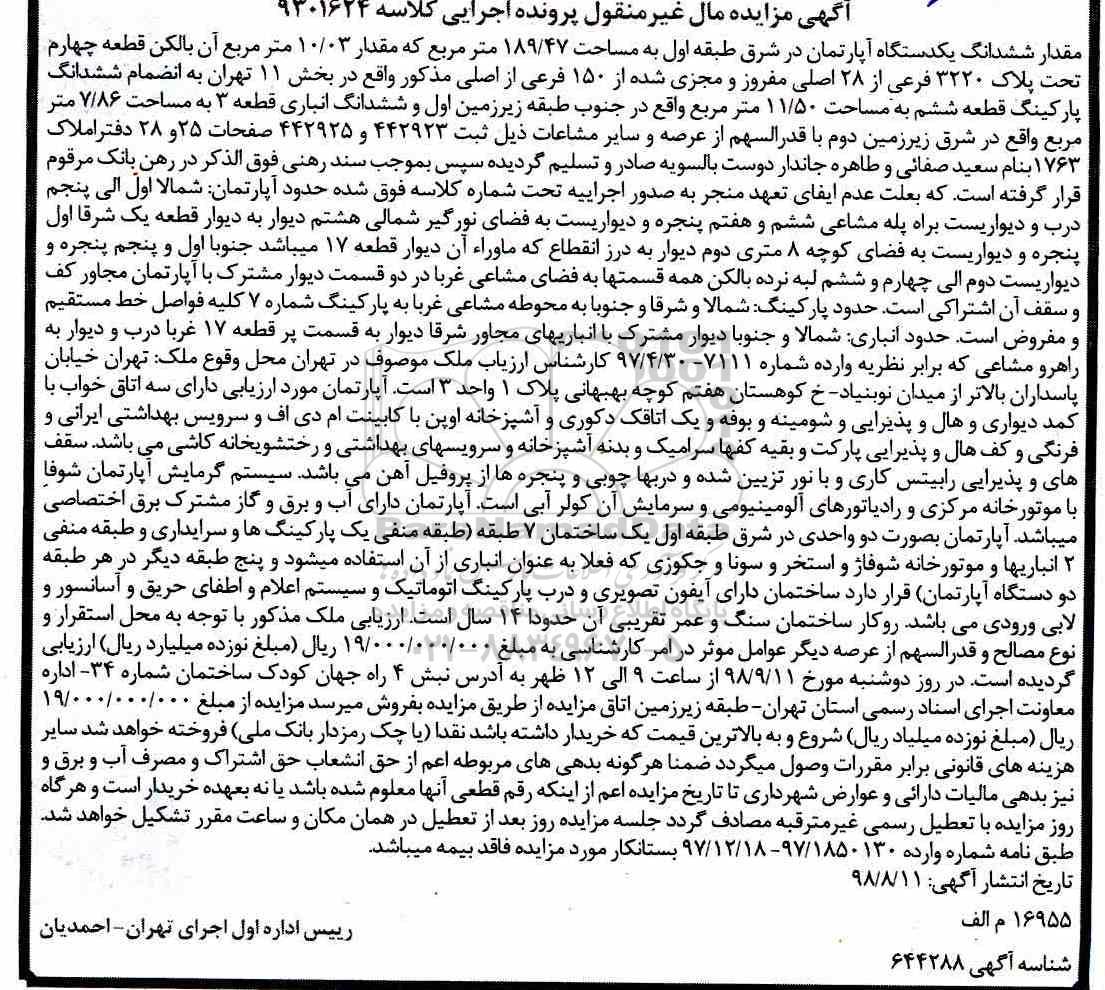 آگهی مزایده مال غیر منقول پرونده اجرایی کلاسه ۹۳۰۱۶۲۴
مقدار ششدانگ یکدستگاه آپارتمان در شرق طبقه اول به مساحت ۱۸۹/۴۷ متر مربع که مقدار ۱۰/۰۳ متر مربع آن بالکن قطعه چهارم
تحت پلاک ۳۲۲۰ فرعی از ۲۸ اصلی مفروز و مجزی شده از ۱۵۰ فرعی از اصلی مذکور واقع در بخش ۱۱ تهران به انضمام ششدانگ
پارکینگ قطعه ششم به مساحت ۱۱/۵۰ متر مربع واقع در جنوب طبقه زیرزمین اول و ششدانگ انباری قطعه ۳ به مساحت ۷/۸۶ متر
مربع واقع در شرق زیرزمین دوم با قدرالسهم از عرصه و سایر مشاعات ذیل ثبت ۴۴۲۹۲۳ و ۴۴۲۹۲۵ صفحات ۲۵و ۲۸ دفتراملاک
۱۷۶۳بنام سعید صفائی و طاهره جاندار دوست بالسویه صادر و تسلیم گردیده سپس بموجب سند رهنی فوق الذکر در رهن بانک مرقوم
قرار گرفته است. که بعلت عدم ایفای تعهد منجر به صدور اجراییه تحت شماره کلاسه فوق شده حدود آپارتمان: شمالا اول الی پنجم
درب و دیواریست براه پله مشاعی ششم و هفتم پنجره و دیواریست به فضای نورگیر شمالی هشتم دیوار به دیوار قطعه یک شرقا اول
پنجره و دیواریست به فضای کوچه ۸ متری دوم دیوار به درز انقطاع که ماوراء آن دیوار قطعه ۱۷ میباشد جنوبا اول و پنجم پنجره و
دیواریست دوم الی چهارم و ششم لبه نرده بالکن همه قسمتها به فضای مشاعی غربا در دو قسمت دیوار مشترک با آپارتمان مجاور کف
و سقف آن اشتراکی است. حدود پارکینگ: شمالا و شرقا و جنوبا به محوطه مشاعی غربا به پارکینگ شماره ۷ کلیه فواصل خط مستقیم
و مفروض است. حدود انباری: شمالا و جنوبا دیوار مشترک با انباریهای مجاور شرقا دیوار به قسمت پر قطعه ۱۷ غربا درب و دیوار به
راهرو مشاعی که برابر نظریه وارده شماره ۷۱۱۱-۹۷/۴/۳۰ کارشناس ارزیاب ملک موصوف در تهران محل وقوع ملک: تهران خیابان
پاسداران بالاتر از میدان نوبنیاد- خ کوهستان هفتم کوچه بهبهانی پلاک ۱ واحد ۳ است. آپارتمان مورد ارزیابی دارای سه اتاق خواب با
کمد دیواری و هال و پذیرایی و شومینه و بوفه و یک اتاقک دکوری و آشپزخانه اوپن با کابینت ام دی اف و سرویس بهداشتی ایرانی و
فرنگی و کف هال و پذیرایی پارکت و بقیه کفها سرامیک و بدنه آشپزخانه و سرویسهای بهداشتی و رختشویخانه کاشی می باشد. سقف
های و پذیرایی رابیتس کاری و با نور تزیین شده و دربها چوبی و پنجره ها از پروفیل آهن می باشد. سیستم گرمایش آپارتمان شوفا
با موتورخانه مرکزی و رادیاتورهای آلومینیومی و سرمایش آن کولر آبی است. آپارتمان دارای آب و برق و گاز مشترک برق اختصاصی
میباشد. آپارتمان بصورت دو واحدی در شرق طبقه اول یک ساختمان ۷ طبقه (طبقه منفی یک پارکینگ ها و سرایداری و طبقه منفی
۲ انباریها و موتورخانه شوفاژ و استخر و سونا و جکوزی که فعلا به عنوان انباری از آن استفاده میشود و پنج طبقه دیگر در هر طبقه
دو دستگاه آپارتمان) قرار دارد ساختمان دارای آیفون تصویری و درب پارکینگ اتوماتیک و سیستم اعلام و اطفای حریق و آسانسور و
لابی ورودی می باشد. روکار ساختمان سنگ و عمر تقریبی آن حدودا ۱۴ سال است. ارزیابی ملک مذکور با توجه به محل استقرار و
نوع مصالح و قدرالسهم از عرصه دیگر عوامل موثر در امر کارشناسی به مبلغ ۱۹/۰۰۰/۰۰۰/۰۰۰ ریال (مبلغ نوزده میلیارد ریال) ارزیابی
گردیده است. در روز دوشنبه مورخ ۹۸/۹/۱۱ از ساعت ۹ الی ۱۲ ظهر به آدرس نبش ۴ راه جهان کودک ساختمان شماره ۳۴- اداره
معاونت اجرای اسناد رسمی استان تهران- طبقه زیرزمین اتاق مزایده از طریق مزایده بفروش میرسد مزایده از مبلغ ۱۹/۰۰۰/۰۰۰/۰۰۰
ریال (مبلغ نوزده میلیاد ریال) شروع و به بالاترین قیمت که خریدار داشته باشد نقدا (یا چک رمزدار بانک ملی) فروخته خواهد شد سایر
هزینه های قانونی برابر مقررات وصول میگردد ضمنا هرگونه بدهی های مربوطه اعم از حق انشعاب حق اشتراک و مصرف آب و برق و
نیز بدهی مالیات دارائی و عوارض شهرداری تا تاریخ مزایده اعم از اینکه رقم قطعی آنها معلوم شده باشد یا نه بعهده خریدار است و هرگاه
روز مزایده با تعطیل رسمی غیرمترقبه مصادف گردد جلسه مزایده روز بعد از تعطیل در همان مکان و ساعت مقرر تشکیل خواهد شد.
طبق نامه شماره وارده ۹۷/۱۸۵۰۱۳۰-۹۷/۱۲/۱۸ بستانکار مورد مزایده فاقد بیمه میباشد.
تاریخ انتشار آگهی: ۹۸/۸/۱۱
۱۶۹۵۵ م الف
رییس اداره اول اجرای تهران- احمدیان
شناسه آگهی ۶۴۴۲۸۸